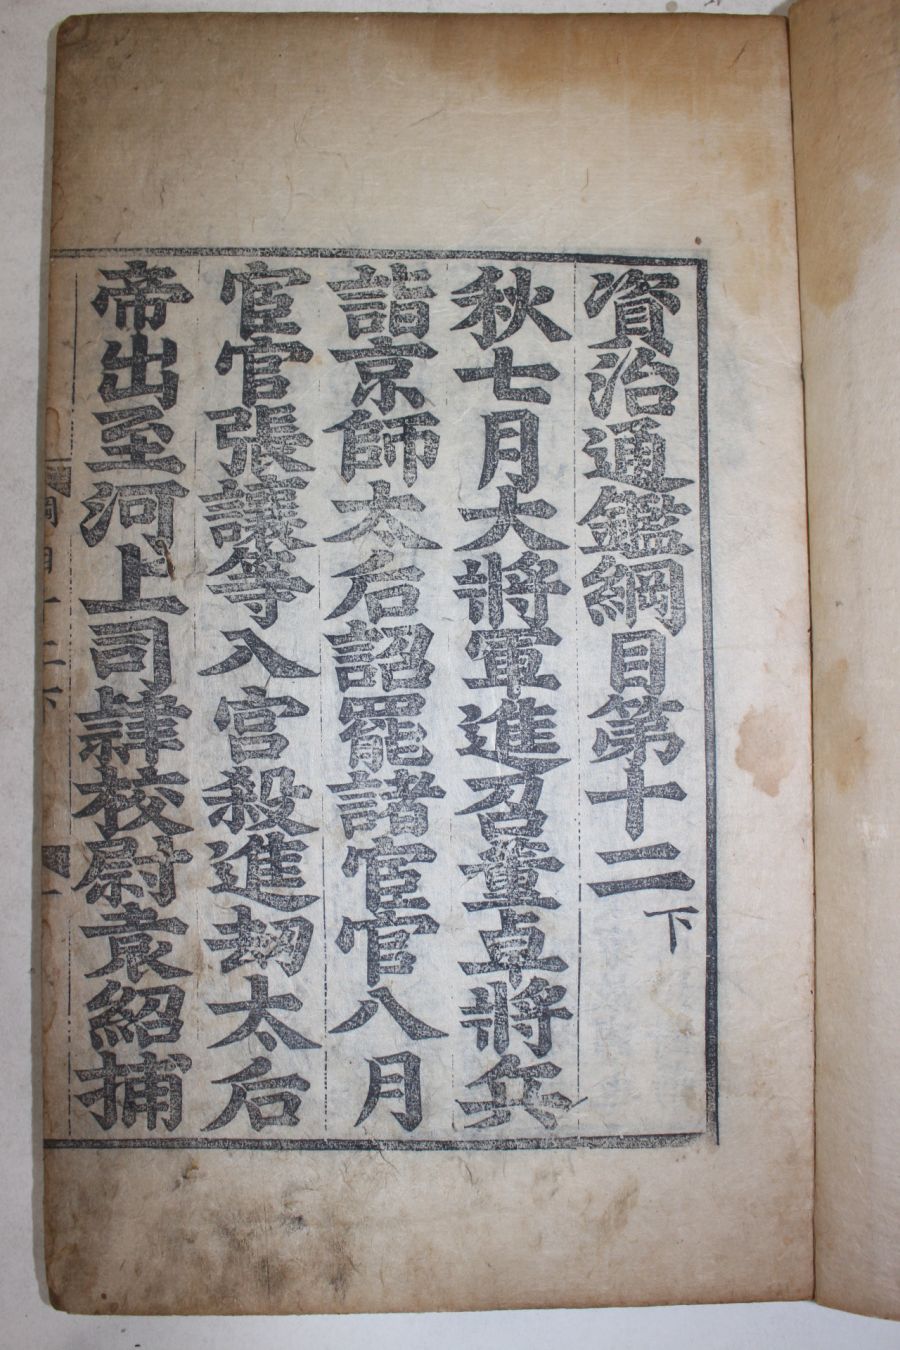 資治通鑑綱目第十二下
秋七月大將軍進召董卓將兵
詣京師太后詔罷諸宦官八月
宦官張讓等入宮殺進劫太后
帝出至河上司隸校尉袁紹捕